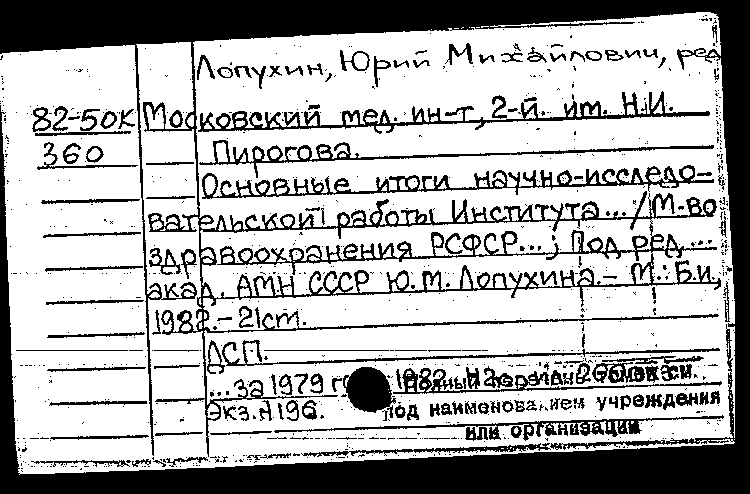 Лопухин, Юрий Михайлович, ред
82-50К Московский мед. ин-т, 2-й. им. Н.И.
360 Пирогова.
Основные итоги научно-исследо-
вательской работы Института... / М-во
здравоохранения РСФСР...; Под ред. ...
акад. АМН СССР Ю.М. Лопухина. - М.: Б.и.,
1982. - 21 ст.
ДСП.
...за 1979 г. 1982.
Полный перечень томов см.
Экз. N 196.
под наименованием учреждения
или организации